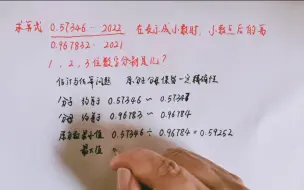 求算式 0.57346…2022 / 0.967832…2021 在表示成小数时,小数点后的第
1、2、3位数字分别是几?
估计与估算问题 原分子分母保留一定精确性
分子 约等于 0.57346 ~ 0.5734
分母 约等于 0.96783 ~ 0.96784
原分数最小值 0.57346 ÷ 0.96784 = 0.59252
最大值